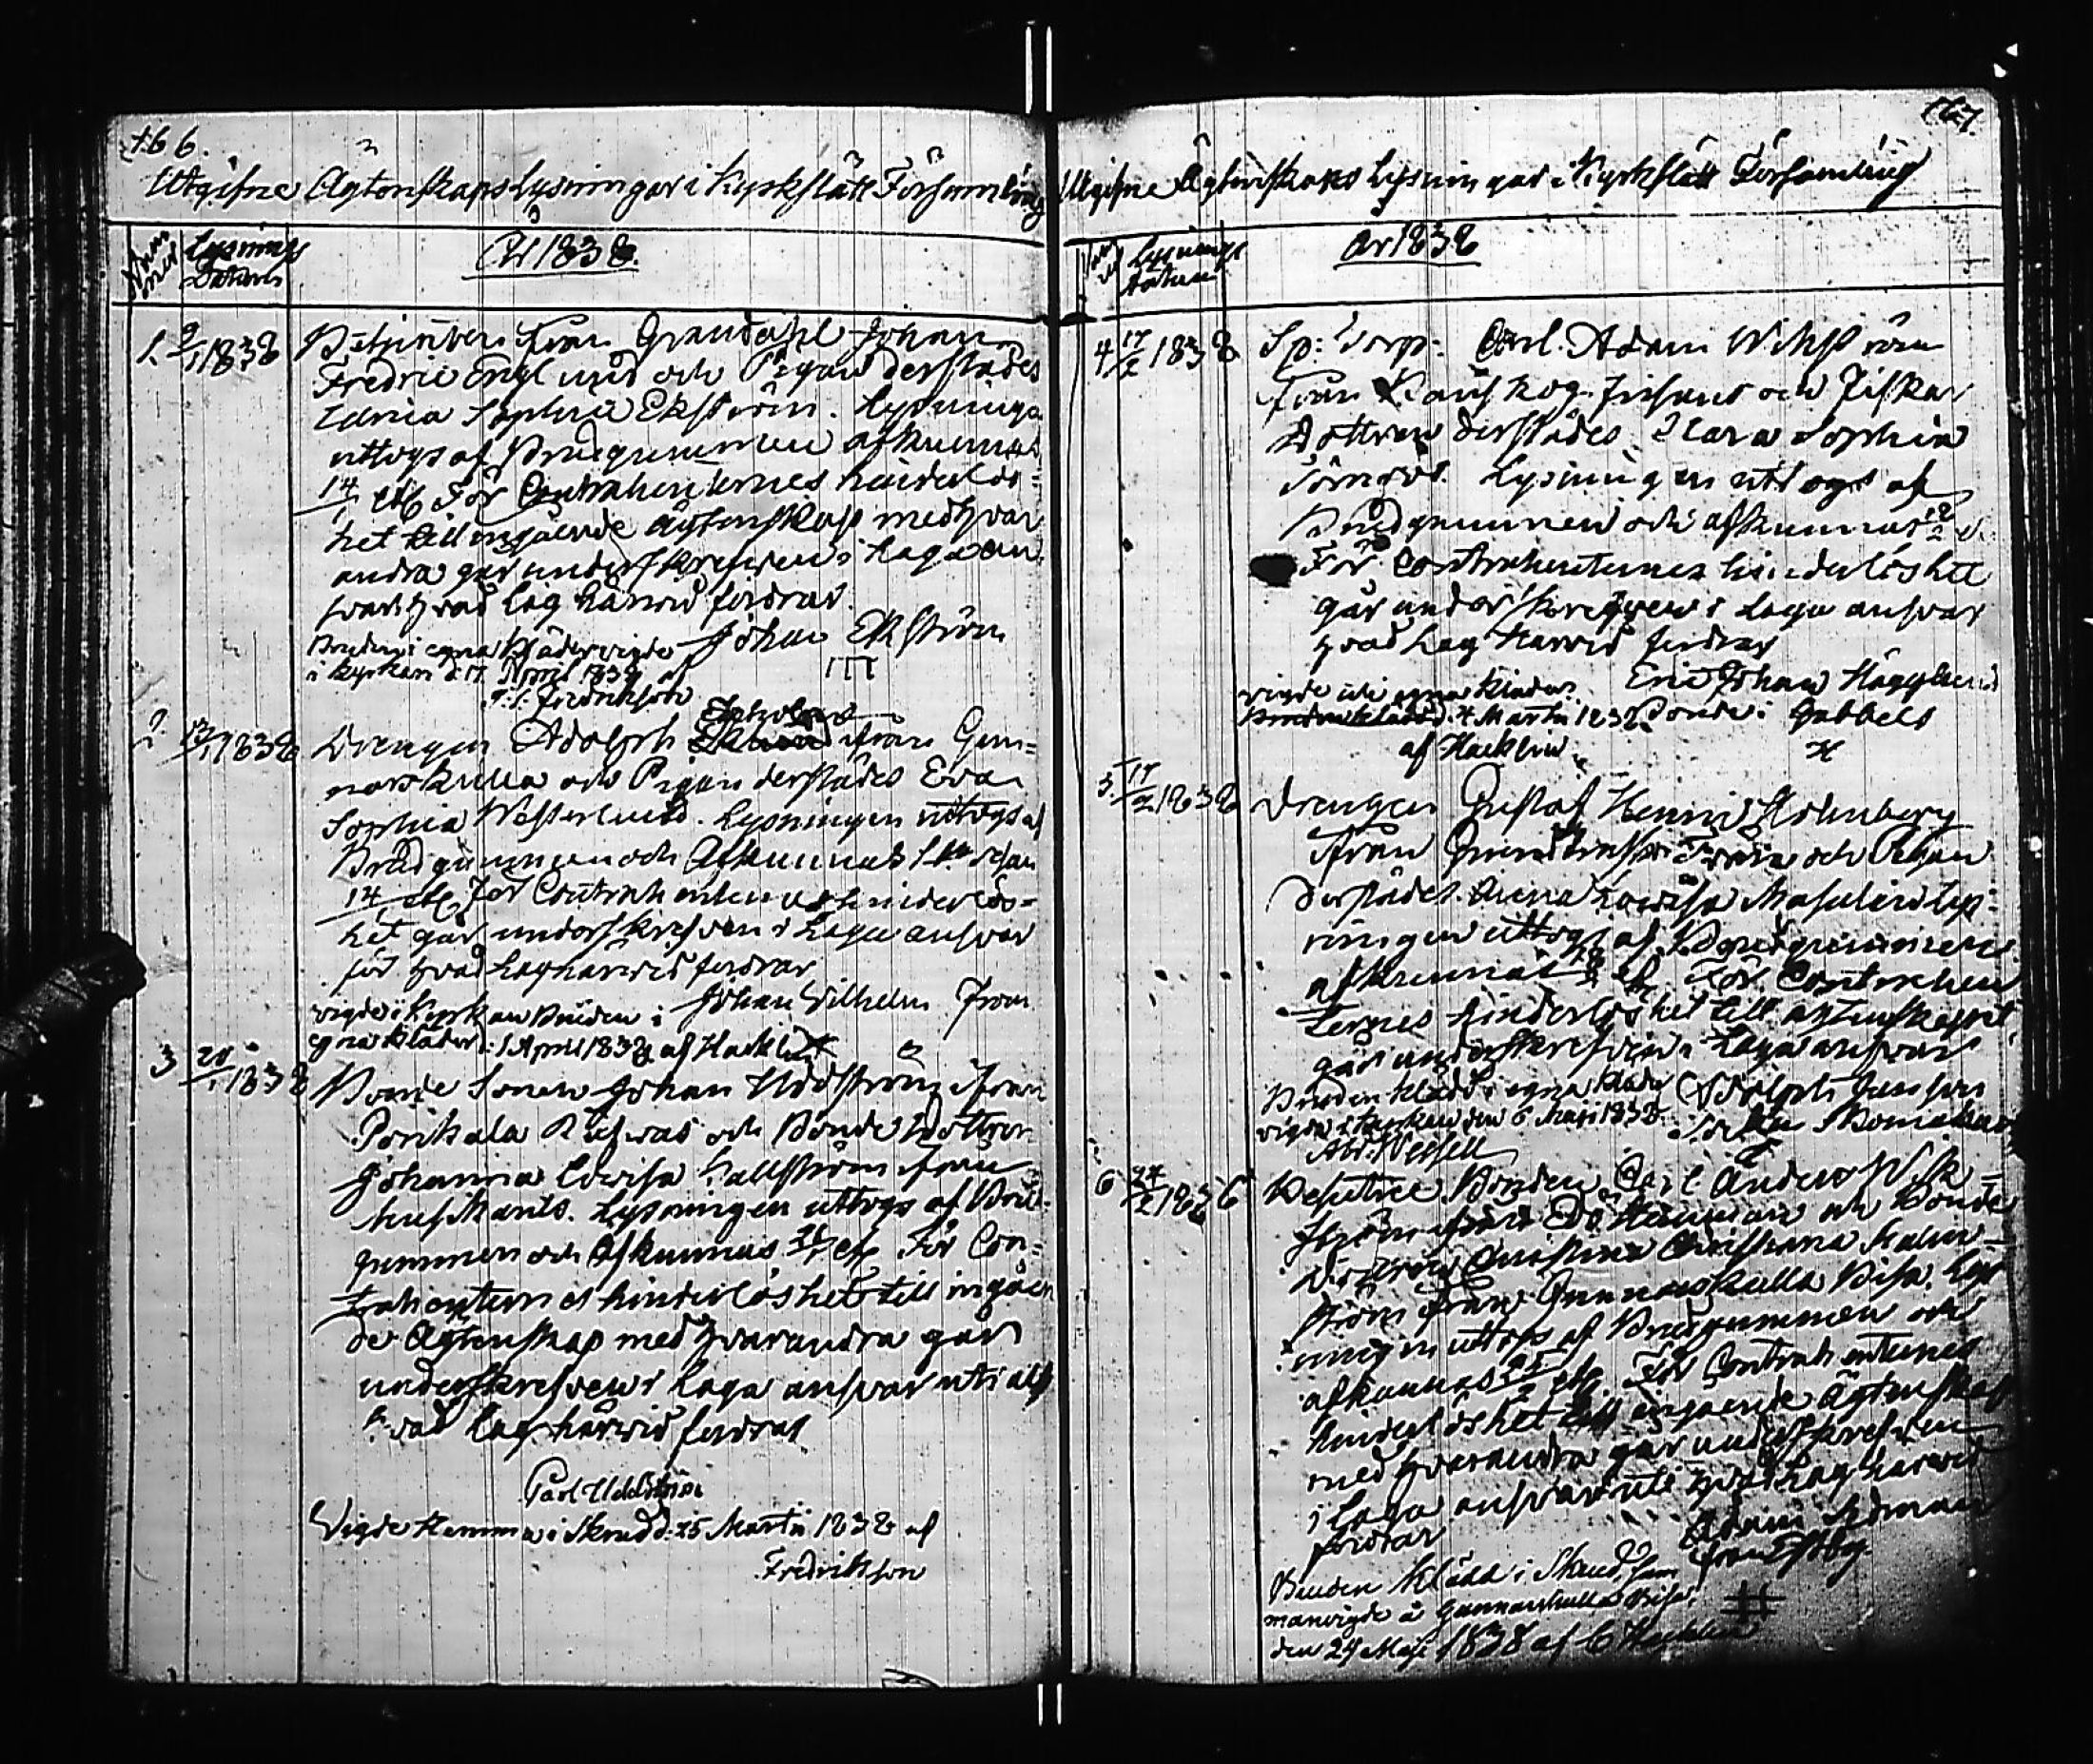 166.
Utgifne Ägtenskaps Lysningar i Kyrkslätt Församling
Num mer Lysnings Datum
År 1838.
1. 9/1 1838 från Johan
Fredric Englund och Pigan derstädes
Maria Sophia Ekström. Lysningen
uttogs af Brudgummen afkunnas
14/1 För Contrahenternes hinderlös=
het till ingående Ägtenskap med hvar
andra går underskrefven i Laga an
svar hvad Lag härwid fordrar.
Bruden i egna kläder vigde Johan Ekström
i kyrkan d. 17 April 1838 af
Fredrikson
2. 13/1 1838 Drengen Adolph från Gun=
narskulla och Pigan derstädes Eva
Sophia Westerlund. Lysningen uttogs af
Brudgummen och Afkunnas
14 För Contrahenternes hinderlös=
het går underskrefven i Laga answar
för hvad Lag härwid fordrar
vigde i Kyrkan Bruden i Johan Wilhelm
egna kläder d. 1 April 1838 af Hacklin
3 20/1 1838 Bonde Sonen Johan Uddström ifrån
Porkala och Bonde Dottren
Johanna Lovisa Hallström från
Lysningen uttogs af Brud=
gummen och Afkunnas 21/1 För Con=
trahenternes hinderlöshet till ingåen
de Ägtenskap med hvarandra går
underskrefven i Laga answar uti allt
hvad Lag härwid fordrar
Carl Uddström
Vigde hemma i Skrud d. 25 Martii 1838 af
Fredrikson
167.
Utgifne Ägtenskaps Lysningar i Kyrkslätt Församling
Lysnings Datum
År 1838
4 17/2 1838 Sp: Torp: Carl Adam Wikström
från och Fiskar
Dottren derstädes Clara Sophia
Törnqvist. Lysningen uttogs af
Brudgummen och afkunnas 18/2
För Contrahenternes hinderlöshet
går underskrefven i Laga answar
hvad Lag härwid fordrar
Eric Johan Hägglund
vigde uti egna kläder
d. 4 Martii 1838 Bonde i Gobbels
af Hacklin
5. 17/2 1838 Drengen Gustaf Henric Holmberg
från och Pigan
derstädes Anna Lovisa Lys=
ningen uttogs af Brudgummen
afkunnas 18/2 För Contrahen
ternes hinderlöshet till ägtenskapet
går underskrefven i Laga answar
Bruden klädd i egna kläder Adolph
vigde i kyrkan den 6 Maji 1838
Abr. Wessell
6 24/2 1838 Bonden Carl Anders Wik=
ström från och Bonde
Dottren Christina Christiana Malm=
ström från Gunnarskulla Bisa. Lys
ningen uttogs af Brudgummen och
afkunnas 25/2 För Contrahenternes
hinderlöshet till ingående Ägtenskap
med hvarandra går underskrefven
i Laga answar uti hvad Lag härwid
fordrar
Adam
från Estby
Bruden klädd i Skrud, sam
manvigde å Gunnarskulla Bisa,
den 24 Maji 1838 af C Hacklin